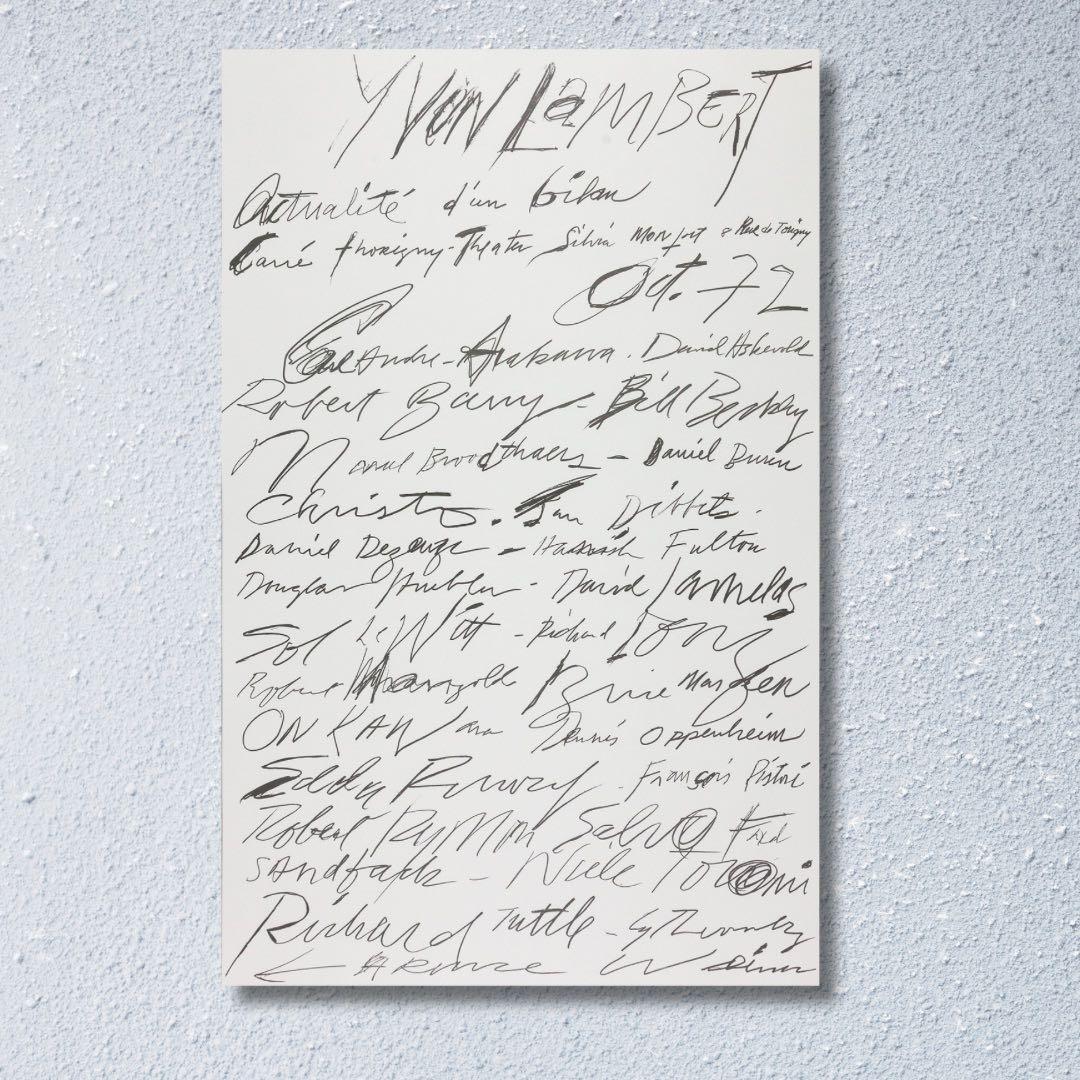 YVON LAMBERT
Actualité d'un bilan
Carré Thorigny-Theater Silvia Monfort 8 Rue de Torigny
Oct. 72
Carl Andre - Arakawa. David Askevold
Robert Barry - Bill Beckley
Marcel Broodthaers - Daniel Buren
Christo. Jan Dibbets.
Daniel Dezeuze - Hamish Fulton
Douglas Huebler - David Lamelas
Sol LeWitt - Richard Long
Robert Mangold Brice Marden
ON KAWara Dennis Oppenheim
Edda Renouf. François Ristori
Robert Ryman Salvo Fred
SANdback - Niele Toroni
Richard Tuttle - Cy Twombly
LARENCE Weiner